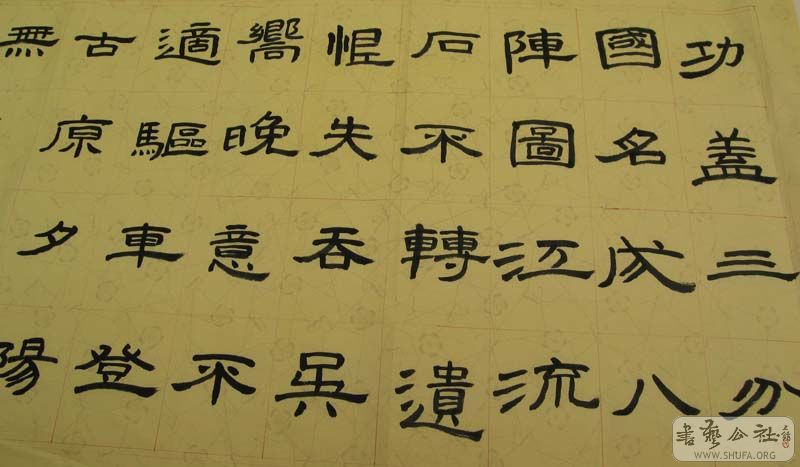 功蓋三分
國名成八
陣圖江流
石不轉遺
恨失吞吳
嚮晚意不
適驅車登
古原夕陽
無
書藝公社
WWW.SHUFA.ORG